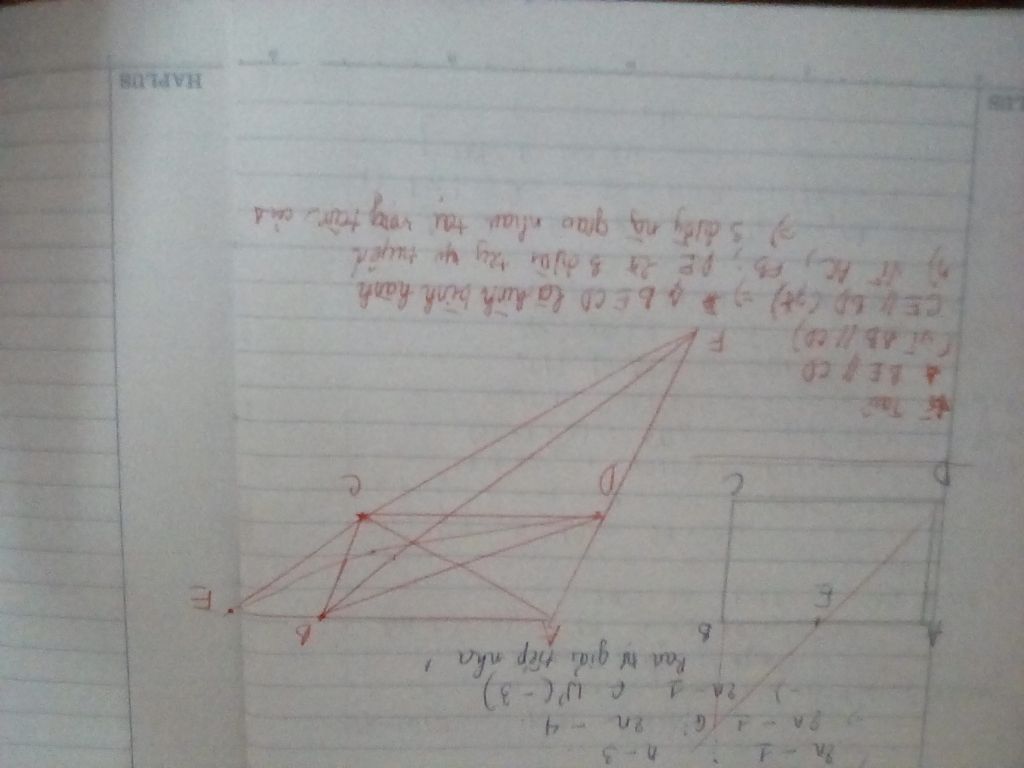 2n - 1 ⋮ n - 3
2n - 1 ⋮ 2n - 4
2n - 1 ∈ Ư(-3)
Bạn tự giải tiếp nha !
A B
E
D C
A B E
D C
F
Ta có
BE // CD
(vì AB // CD)
CE // BD (gt) => BECD là hình bình hành
b) Vì AC, FB, DE là 3 đường trung tuyến
=> 3 đường này giao nhau tại trọng tâm của
HAPLUS